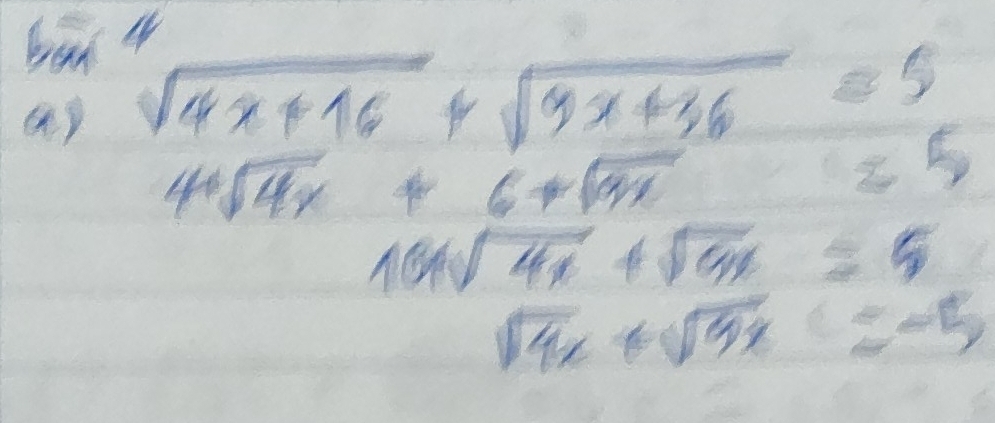 bài 4
a) √4x+16 + √9x+36 = 5
4+√4x + 6+√9x = 5
10+√4x + √9x = 5
√4x + √9x = -5